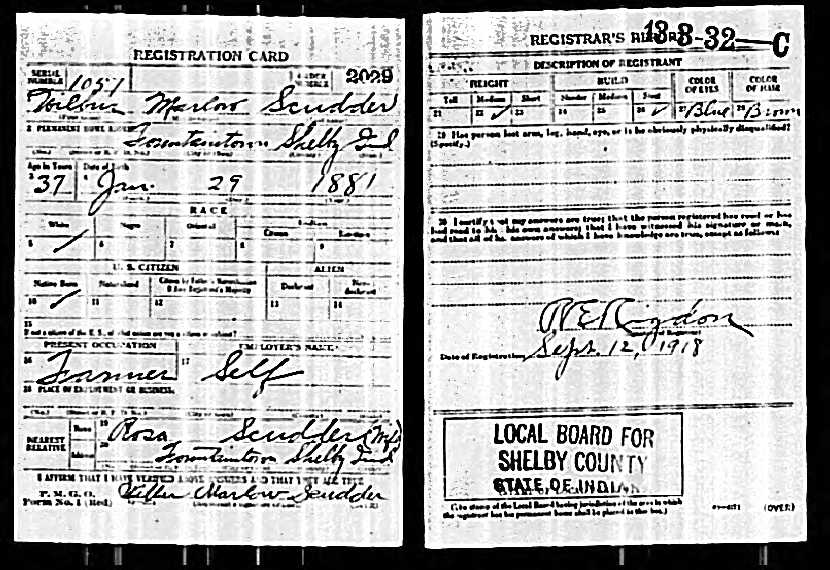 REGISTRATION CARD
SERIAL NUMBER 1051 ORDER NUMBER 2029
Wilbur Marlow Scudder
2 PERMANENT HOME ADDRESS
Fountaintown Shelby Ind
Age in Years Date of Birth
37 Jan. 29 1881
RACE
White Negro Oriental Indian
Citizen
5 6 7 8 9
U. S. CITIZEN ALIEN
Native Born Naturalized Citizen by Father's Naturalization Before Registrant's Majority Declarant Non-declarant
10 11 12 13 14
15
If not a citizen of the U. S., of what nation are you a citizen or subject?
PRESENT OCCUPATION EMPLOYER'S NAME
16 Farmer 17 Self
18 PLACE OF EMPLOYMENT OR BUSINESS
NEAREST RELATIVE Name 19 Rosa Scudder (Wife)
Address 20 Fountaintown Shelby Ind
I AFFIRM THAT I HAVE VERIFIED ABOVE ANSWERS AND THAT THEY ARE TRUE
P. M. G. O.
Form No. 1 (Red) Marlow Scudder
REGISTRAR'S REPORT 13-3-32-C
DESCRIPTION OF REGISTRANT
HEIGHT BUILD COLOR OF EYES COLOR OF HAIR
Tall Medium Short Slender Medium Stout
21 22 ✓ 23 24 25 26 ✓ 27 Blue 28 Brown
29 Has person lost arm, leg, hand, eye, or is he obviously physically disqualified?
(Specify.)
30 I certify that my answers are true; that the person registered has read or has
had read to him his own answers; that I have witnessed his signature or mark,
and that all of his answers of which I have knowledge are true, except as follows:
Rigdon
Date of Registration Sept. 12, 1918
LOCAL BOARD FOR
SHELBY COUNTY
STATE OF INDIANA
(The stamp of the Local Board having jurisdiction of the area in which
the registrant has his permanent home shall be placed in this box.)
(OVER)